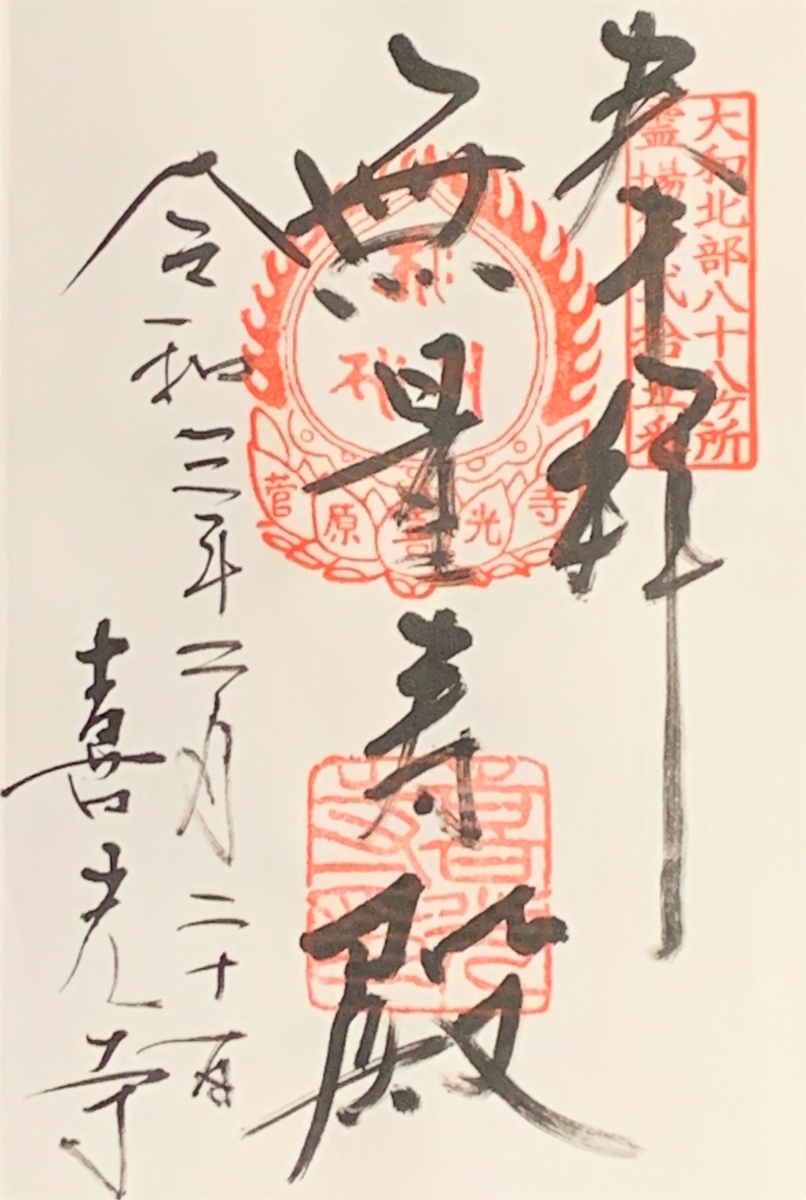 奉拝
大和北部八十八ヶ所
霊場第弐拾五番
無量寿殿
菅原喜光寺
令和三年二月二十一日
喜光寺